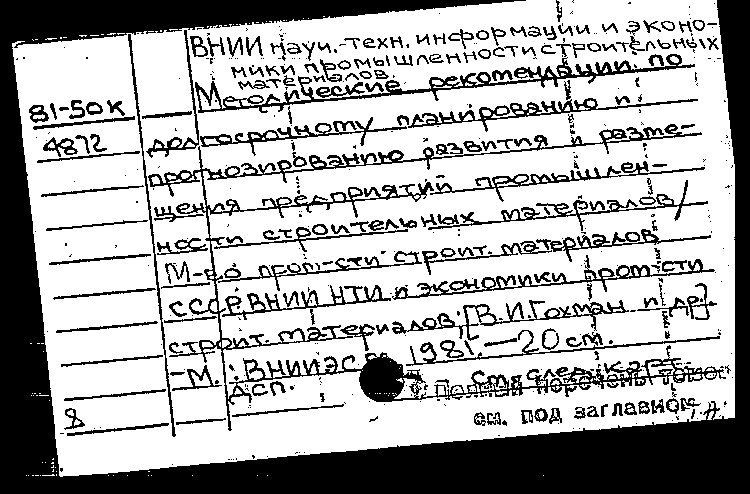 ВНИИ научн.-техн. информации и эконо-
мики промышленности строительных
материалов.
Методические рекомендации по
81-50К
4872
долгосрочному планированию и
прогнозированию развития и разме-
щения предприятий промышлен-
ности строительных материалов/
М-во пром-сти строит. материалов
СССР, ВНИИ НТИ и экономики пром-сти
строит. материалов; [В.И.Гохман и др.].
-М.: ВНИИЭСМ 1981.-20 см.
ДСП.
См. след. карт.
Полный перечень томов
см. под заглавной
8